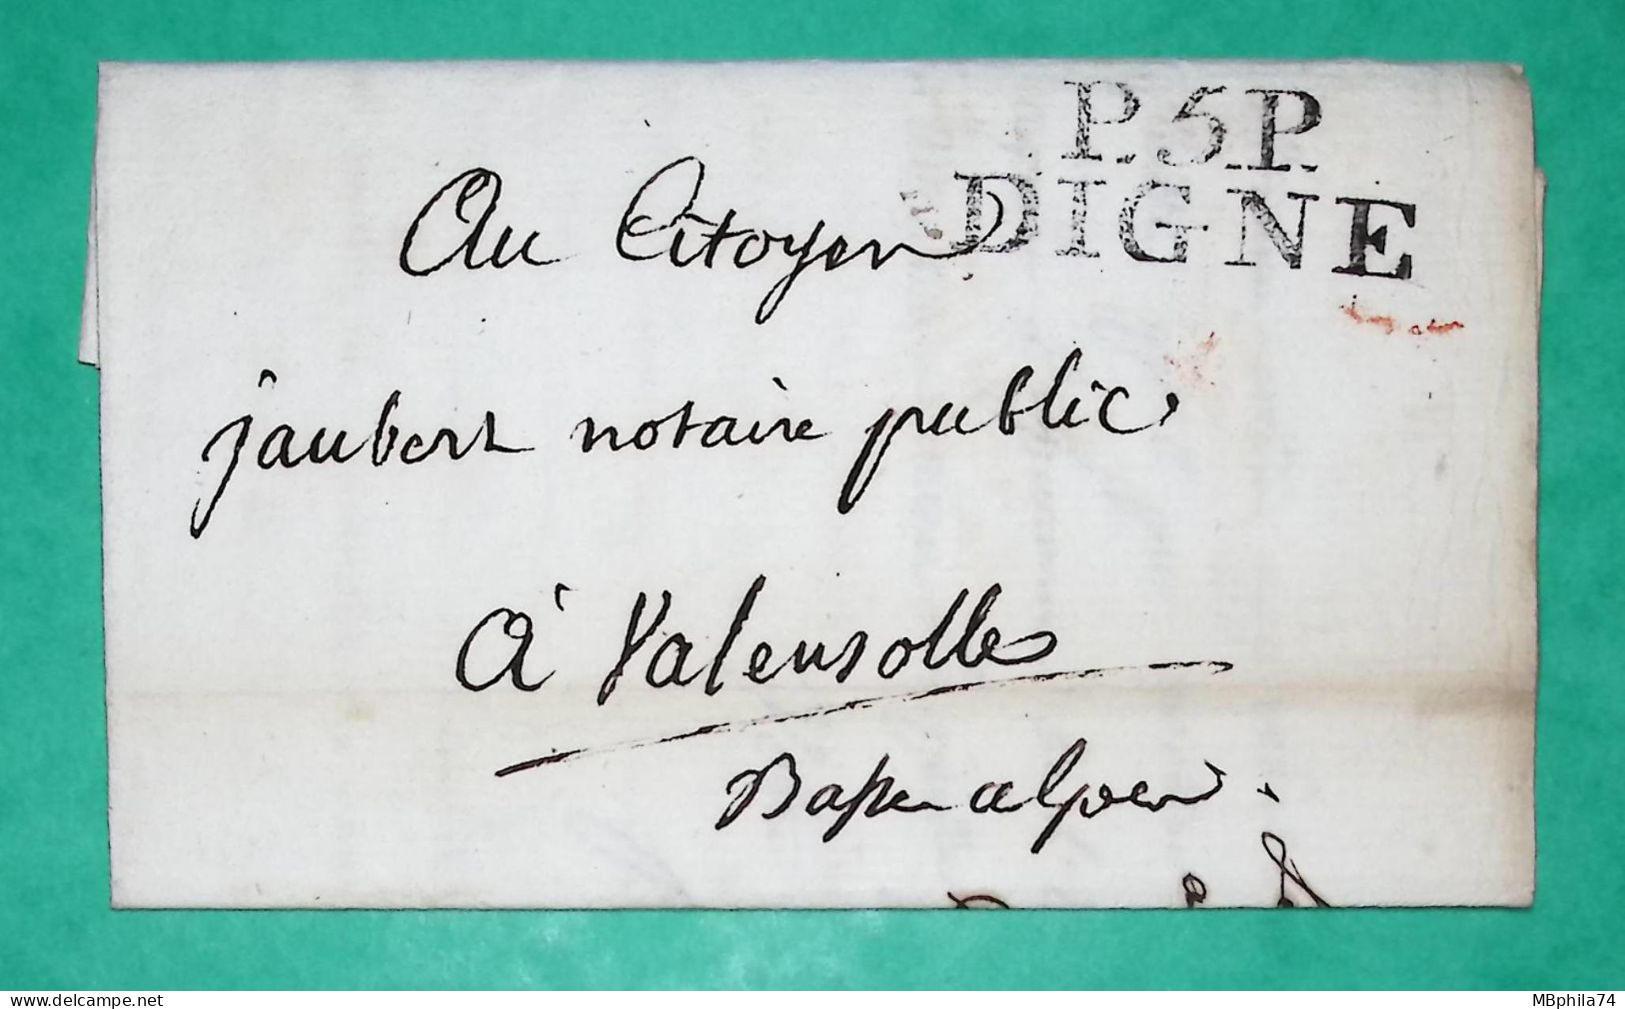 P.5.P.
DIGNE
Au Citoyen
jaubert notaire public
à Valensolle
Basses alpes
www.delcampe.net
MBphila74